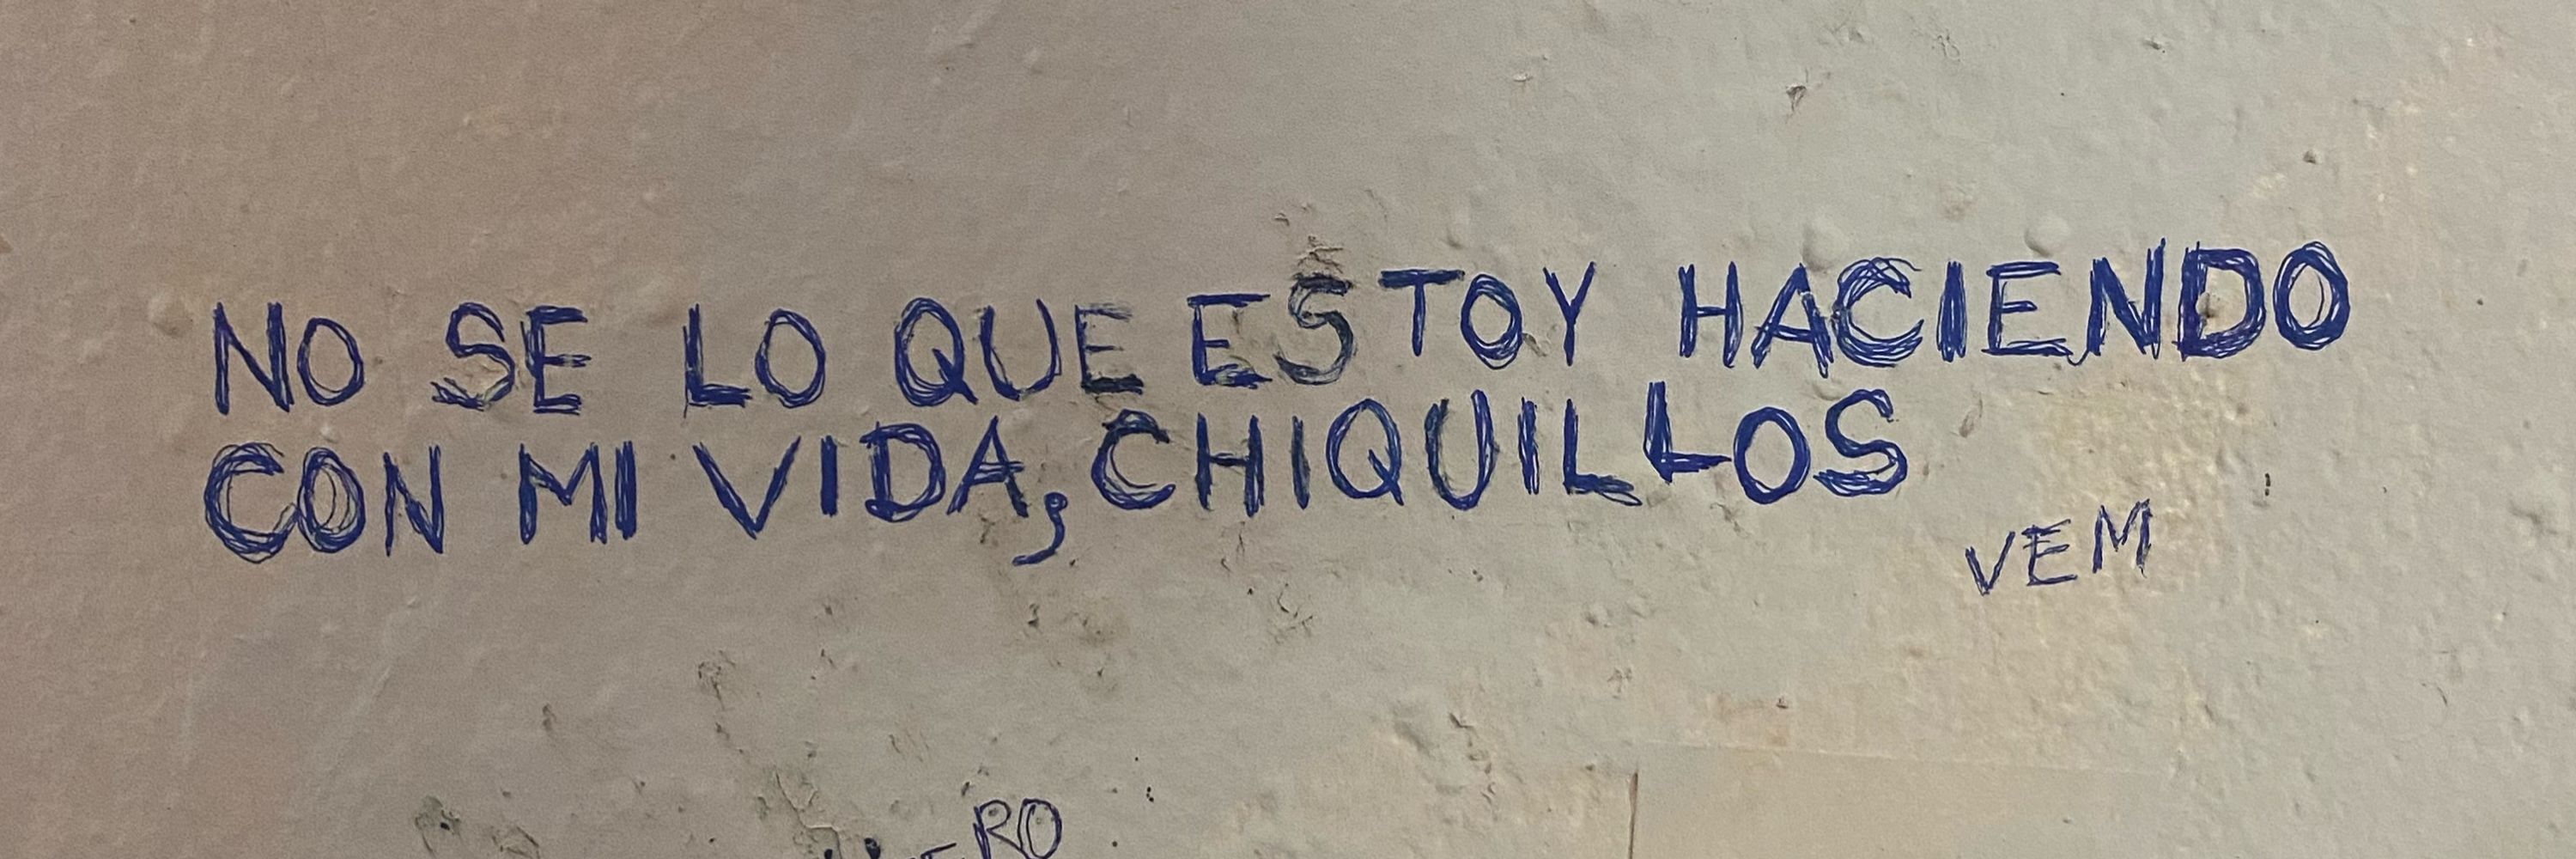 NO SE LO QUE ESTOY HACIENDO
CON MI VIDA, CHIQUILLOS
VEM